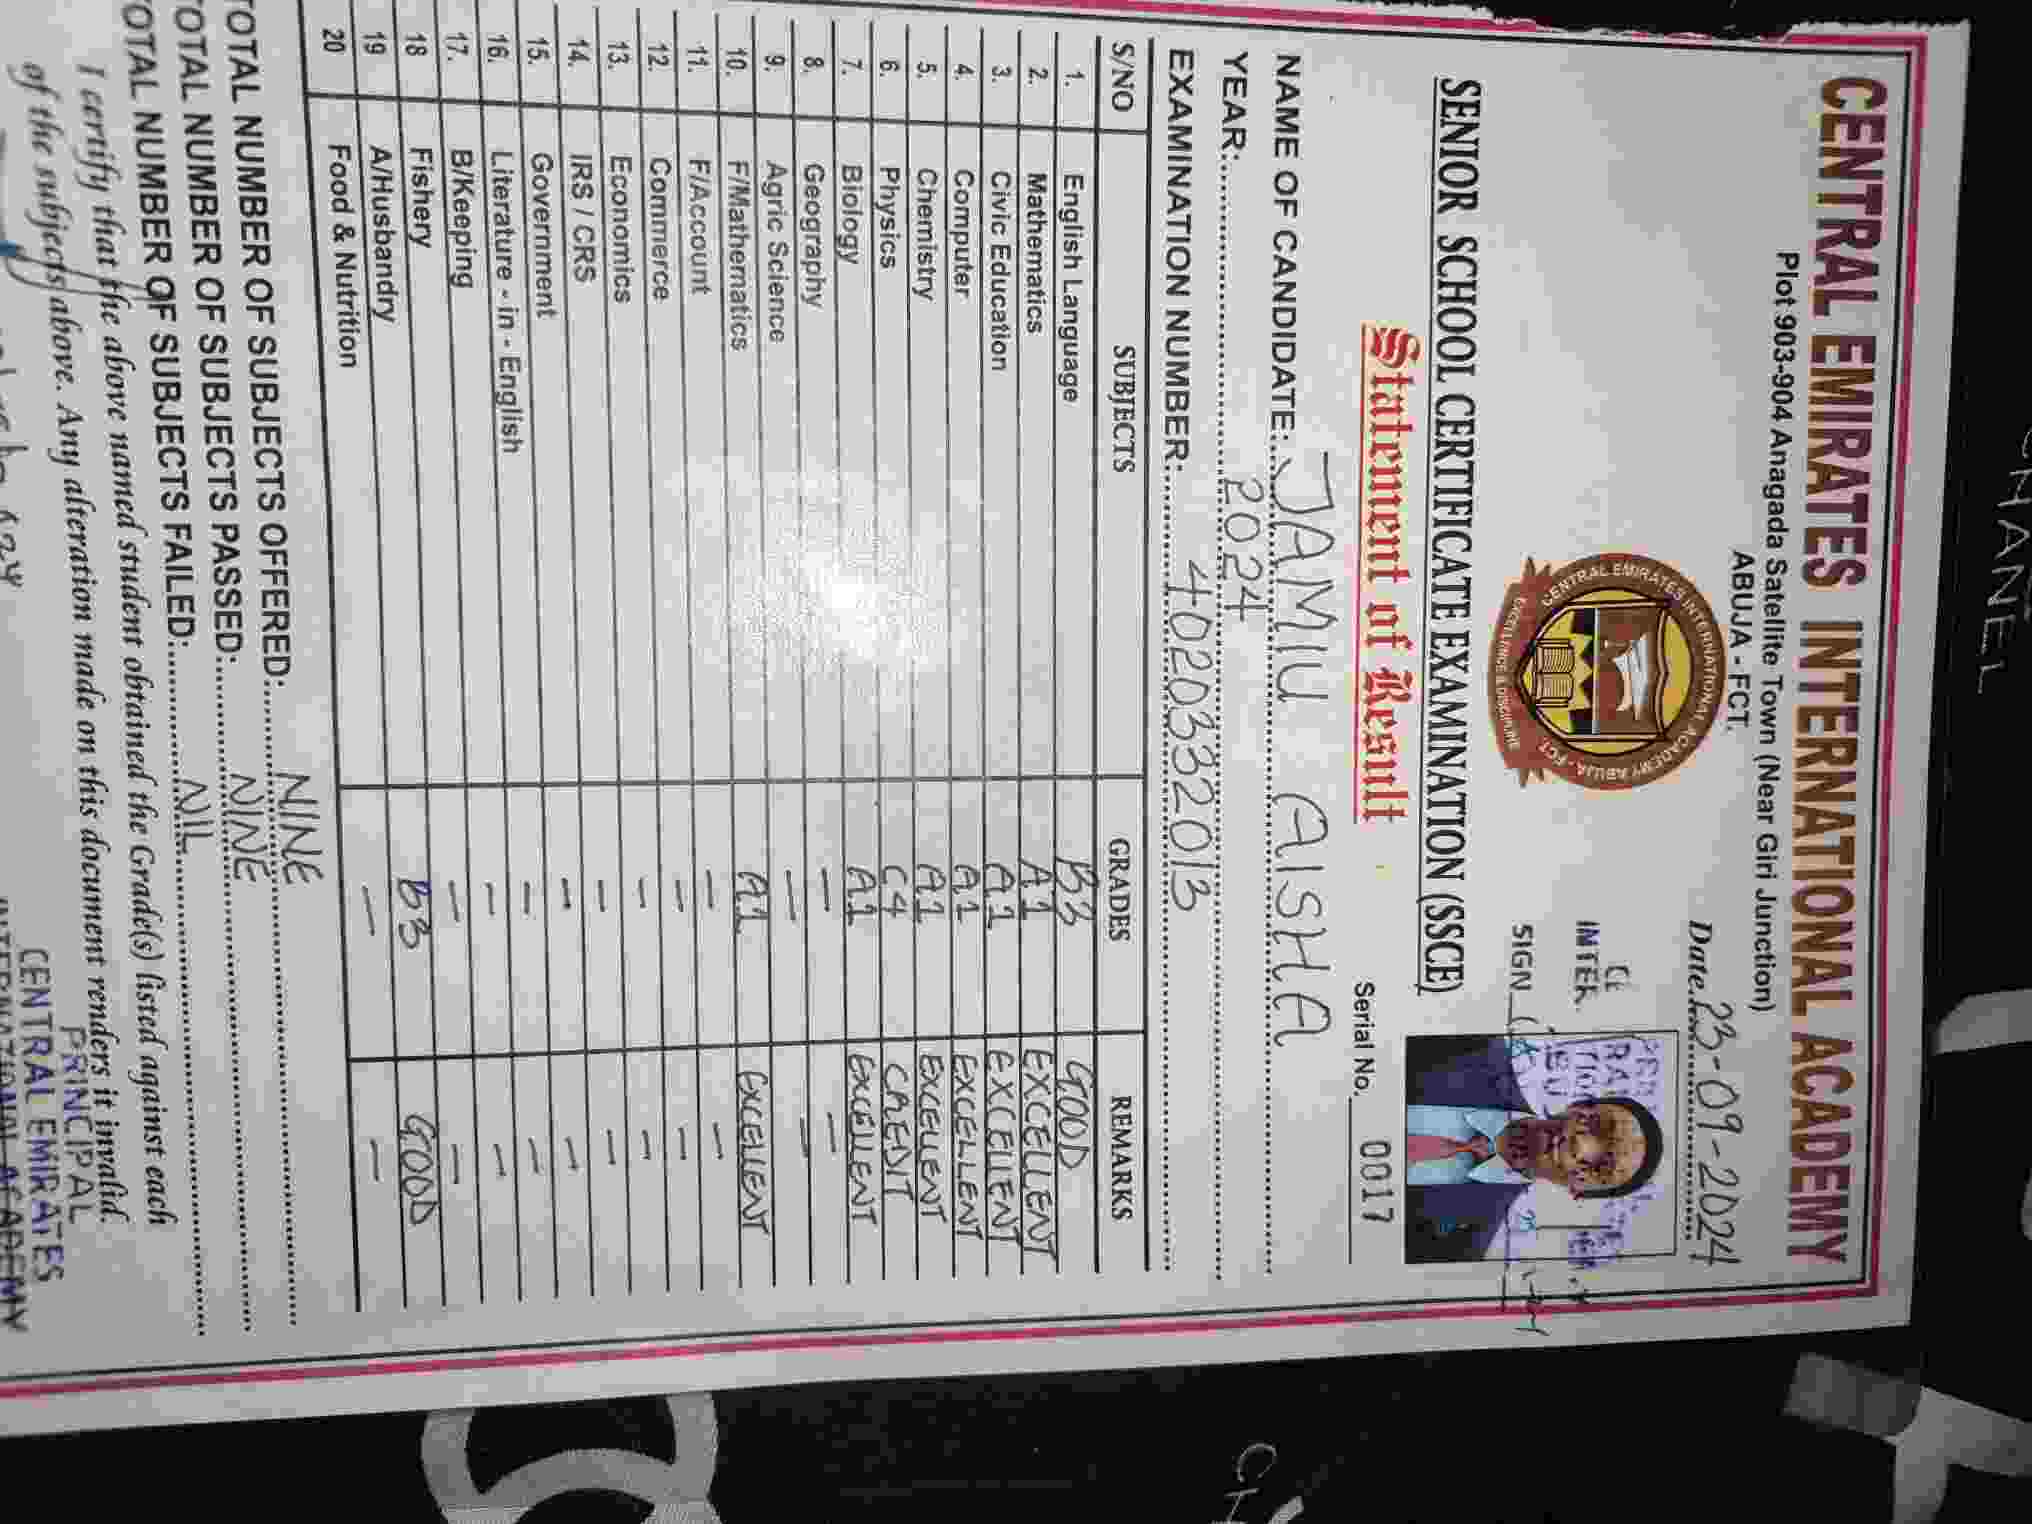 CENTRAL EMIRATES INTERNATIONAL ACADEMY
Plot 903-904 Anagada Satellite Town (Near Giri Junction)
ABUJA - FCT.
Date. 23-09-2024
CENTRAL EMIRATES INTERNATIONAL ACADEMY ABUJA - FCT.
EXCELLENCE & DISCIPLINE
INTER
SIGN
SENIOR SCHOOL CERTIFICATE EXAMINATION (SSCE)
Statement of Result
Serial No. 0017
NAME OF CANDIDATE: JAMIU AISHA
YEAR: 2024
EXAMINATION NUMBER: 4020332013
S/NO SUBJECTS GRADES REMARKS
1. English Language B3 GOOD
2. Mathematics A1 EXCELLENT
3. Civic Education A1 EXCELLENT
4. Computer A1 EXCELLENT
5. Chemistry A1 EXCELLENT
6. Physics C4 CREDIT
7. Biology A1 EXCELLENT
8. Geography — —
9. Agric Science — —
10. F/Mathematics A1 EXCELLENT
11. F/Account — —
12. Commerce — —
13. Economics — —
14. IRS / CRS — —
15. Government — —
16. Literature - in - English — —
17. B/Keeping — —
18 Fishery B3 GOOD
19 A/Husbandry — —
20 Food & Nutrition
TOTAL NUMBER OF SUBJECTS OFFERED: NINE
TOTAL NUMBER OF SUBJECTS PASSED: NINE
TOTAL NUMBER OF SUBJECTS FAILED: NIL
I certify that the above named student obtained the Grade(s) listed against each
of the subjects above. Any alteration made on this document renders it invalid.
PRINCIPAL
CENTRAL EMIRATES
INTERNATIONAL ACADEMY
CHANEL
CH